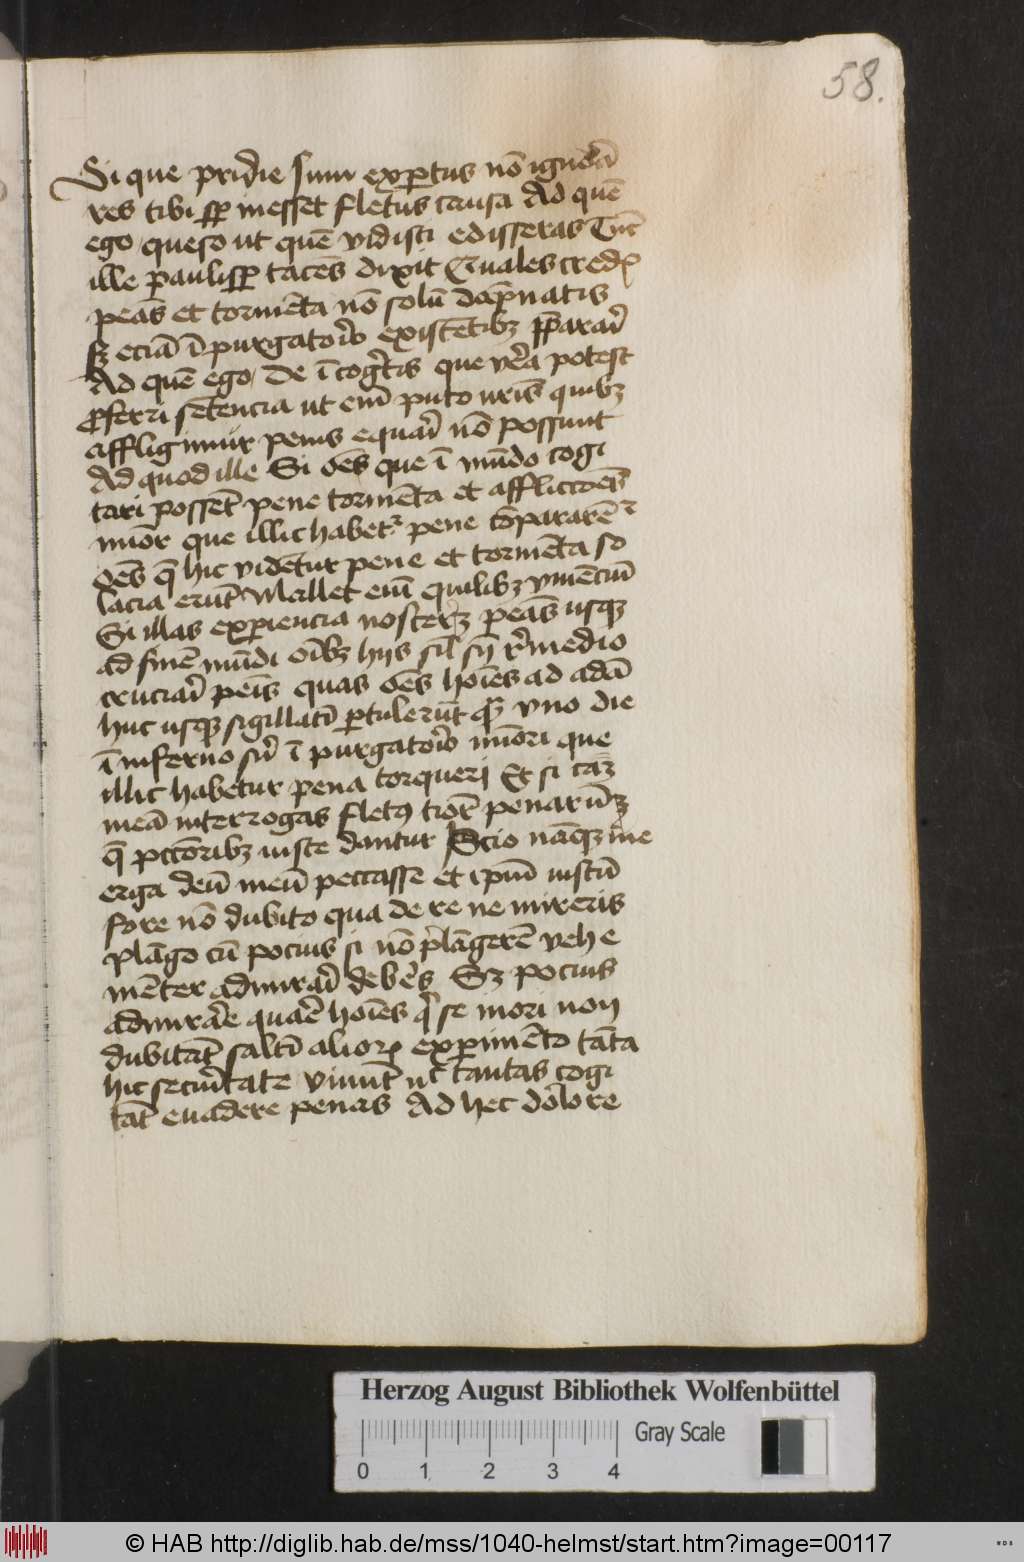 58.
Si que pridie sum expertus nō ignorā
res tibi sꝑ inesset fletus causa Ad quē
ego queso ut quē vidisti edisseras Tūc
ille paulisꝑ tacēs dixit Quales credꝭ
peās et tormēta nō solū dāpnatis
sꝫ eciā ī purgatorio existētibꝫ p̄parari
Ad quē ego de īcogitīs que vera potest
ꝓferri sētencia ut em̄ puto nris̄ quibꝫ
affligimur penis equari nō possunt
Ad quod ille Si oēs que ī mūdo cogi
tari possēt pene tormēta et afflictōēs
minor que illic habetᷣ pene cōpararēᷣ
oēs q̄ hic vidētur pene et tormēta so
lacia erūt Mallet em̄ quilibꝫ viuenciū
Si illas experiencia nosceret peās usqꝫ
ad finē mūdi oībꝫ hijs siĺ sn̄ remedio
cruciari peīs quas oēs hoīes ab adā
huc usqꝫ sigillatī ꝑtulerūt qͣꝫ vno die
ī inferno siue ī purgatorio minori que
illic habetur pena torqueri Et si cāꝫ
meā interrogas fletꝰ timor penarū
q̄ pctōribꝫ iuste dantur Scio nāqꝫ me
erga deū meū peccasse et ip̄m iustū
fore nō dubito qua de re ne mireris
plāgo cū pocius si nō plāgerē vehe
mēter admirari deberes Sꝫ pocius
admirare quare hoīes qui se mori non
dubitāt saltī alioꝝ experimēto tāta
hic securitate viuūt nec tantas cogi
tāt euadere penas Ad hec dolore
Herzog August Bibliothek Wolfenbüttel
Gray Scale
0 1 2 3 4
© HAB http://diglib.hab.de/mss/1040-helmst/start.htm?image=00117